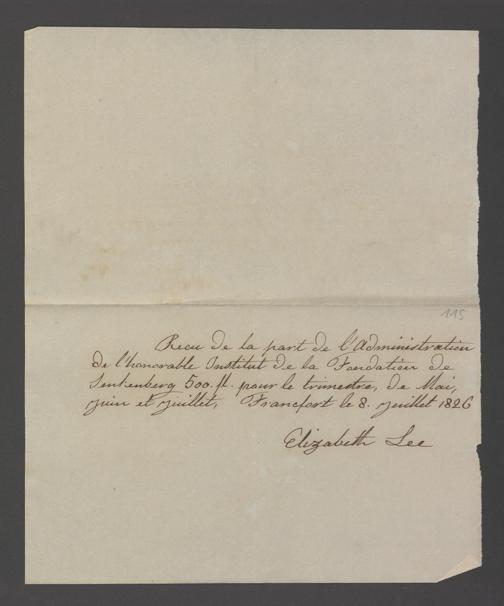 115
Recu de la part de l'Administration
de l'honorable Institut de la Fondation de
Senkenberg 500. fl. pour le trimestre, de Mai,
juin et juillet, Francfort le 8. juillet 1826
Elizabeth Lee